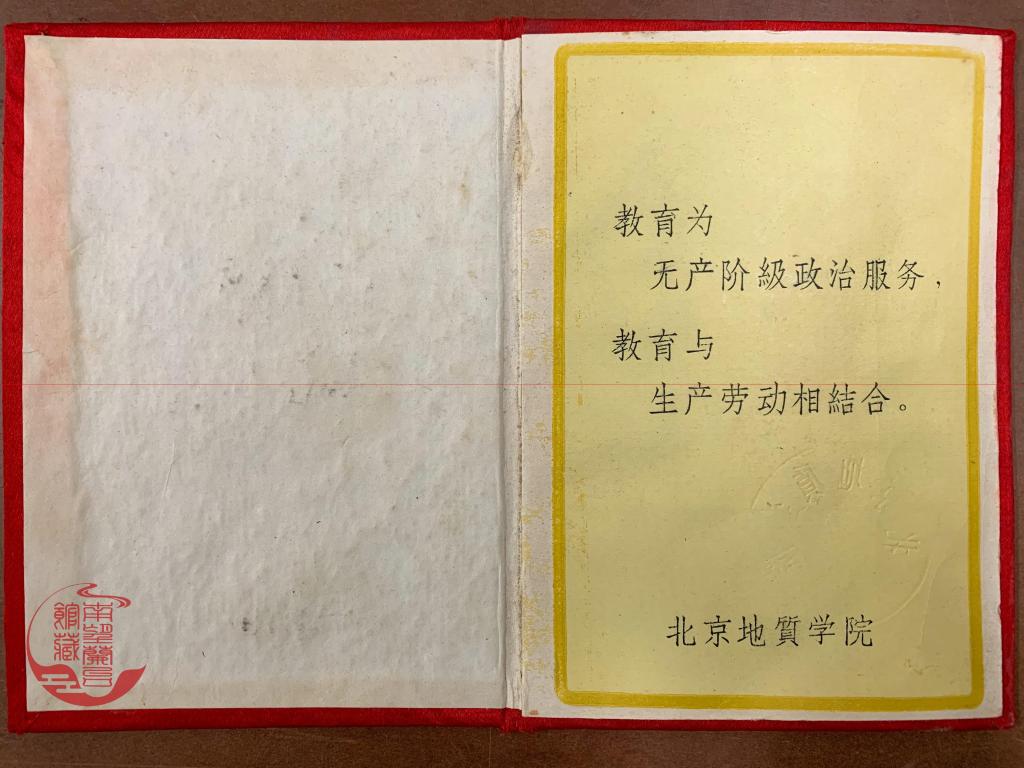 教育为
无产阶級政治服务，
教育与
生产劳动相結合。
北京地質学院
館藏